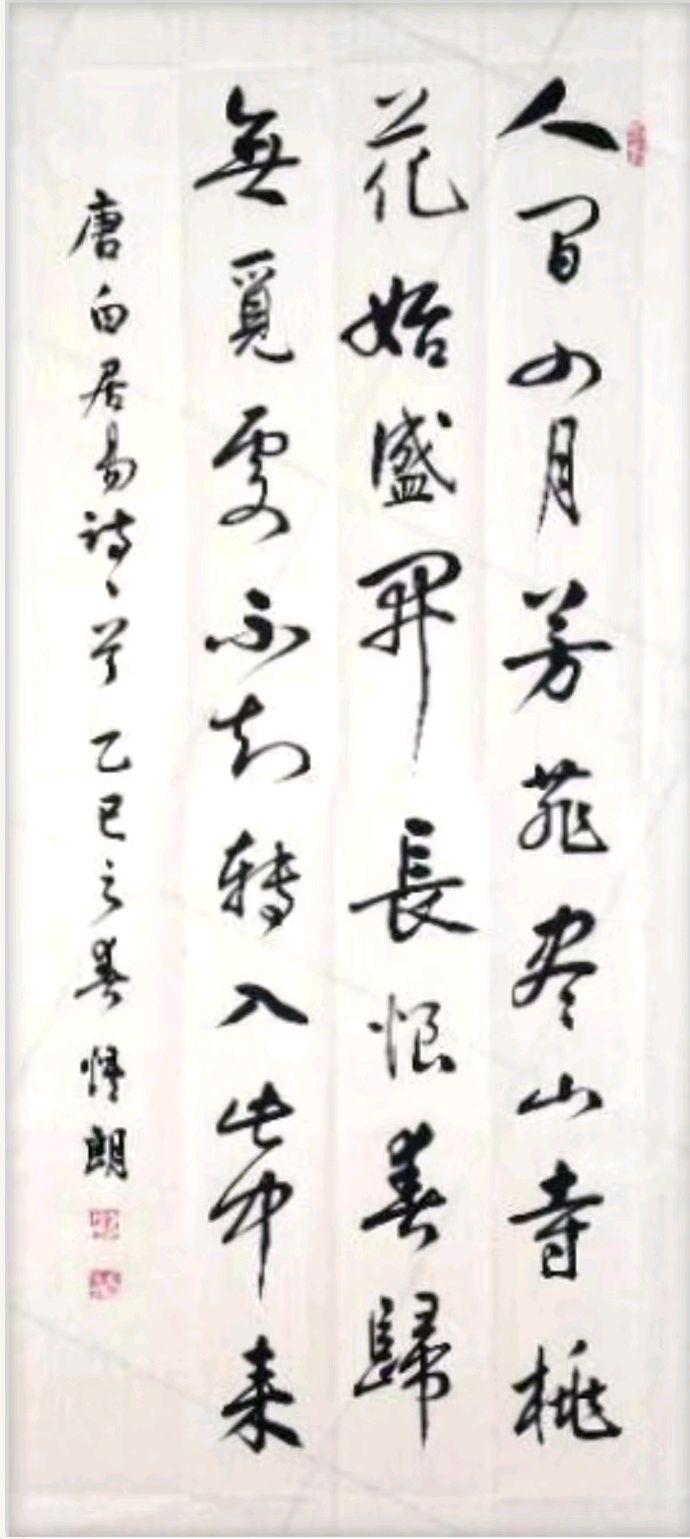 人間四月芳菲盡山寺桃
花始盛開長恨春歸
無覓處不知轉入此中來
唐白居易詩一首 乙巳之春 悟朗